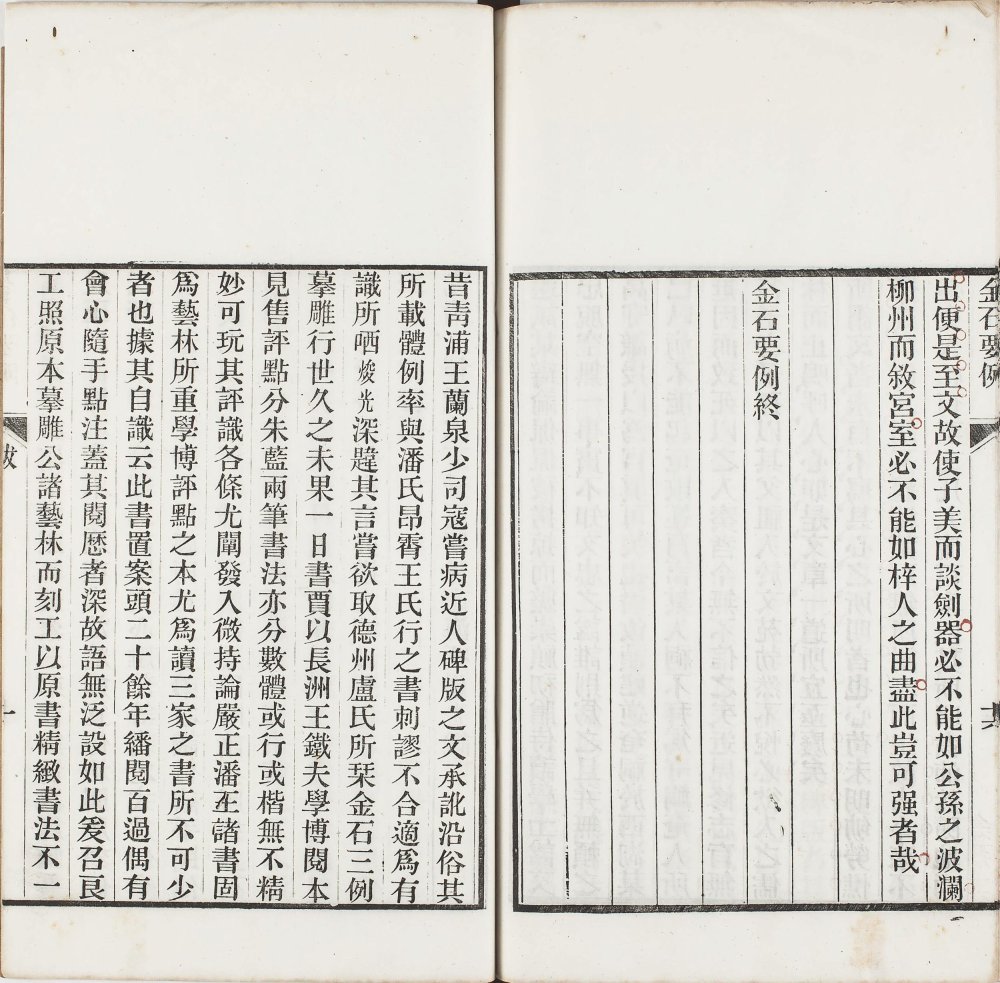 金石要例
十六
出便是至文故使子美而談劍器必不能如公孫之波瀾
柳州而敘宮室必不能如梓人之曲盡此豈可强者哉
金石要例終
昔靑浦王蘭泉少司寇嘗病近人碑版之文承訛沿俗其
所載體例率與潘氏昂霄王氏行之書刺謬不合適爲有
識所哂焌光深韙其言嘗欲取德州盧氏所栞金石三例
摹雕行世久之未果一日書賈以長洲王鐵夫學博閱本
見售評點分朱藍兩筆書法亦分數體或行或楷無不精
妙可玩其評識各條尤闡發入微持論嚴正潘王諸書固
爲藝林所重學博評點之本尤爲讀三家之書所不可少
者也據其自識云此書置案頭二十餘年繙閱百過偶有
會心隨手點注蓋其閱歷者深故語無泛設如此爰召良
工照原本摹雕公諸藝林而刻工以原書精緻書法不一
跋
一